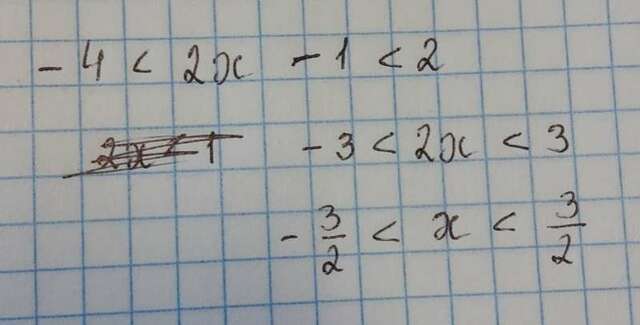 - 4 < 2x - 1 < 2
- 3 < 2x < 3
- 3/2 < x < 3/2